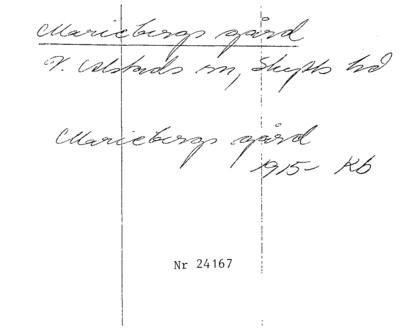 Mariebergs gård
V. Alstads sn, Skytts hd
Mariebergs gård
1915- Kb
Nr 24167